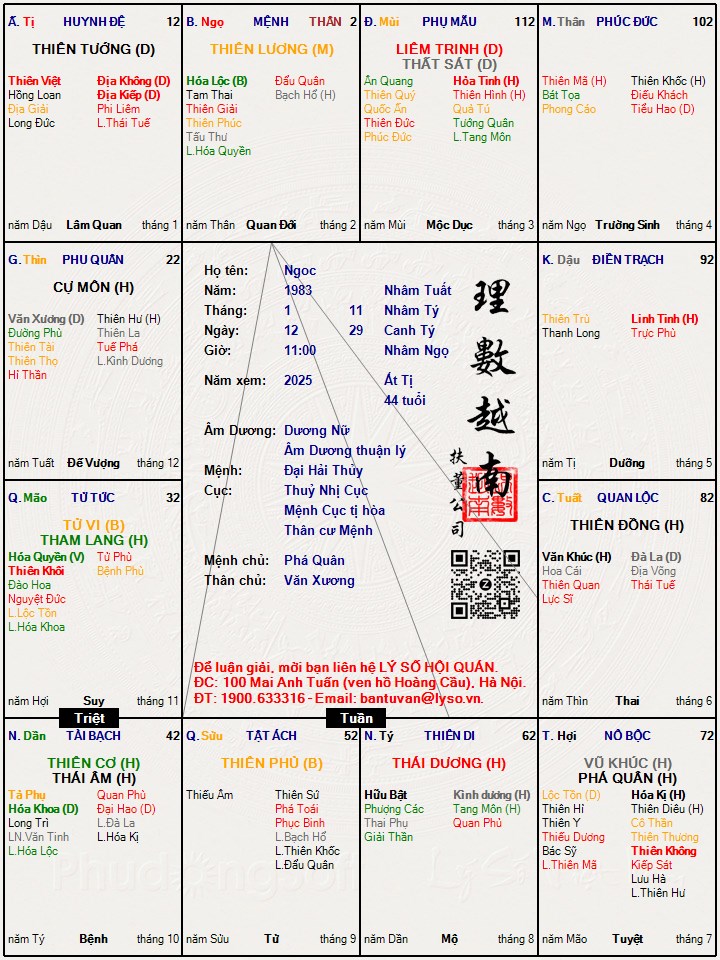 Ấ. Tị HUYNH ĐỆ 12
THIÊN TƯỚNG (D)
Thiên Việt Địa Không (D)
Hồng Loan Địa Kiếp (D)
Địa Giải Phi Liêm
Long Đức L.Thái Tuế
năm Dậu Lâm Quan tháng 1
B. Ngọ MỆNH THÂN 2
THIÊN LƯƠNG (M)
Hóa Lộc (B) Đẩu Quân
Tam Thai Bạch Hổ (H)
Thiên Giải
Thiên Phúc
Tấu Thư
L.Hóa Quyền
năm Thân Quan Đới tháng 2
Đ. Mùi PHỤ MẪU 112
LIÊM TRINH (D)
THẤT SÁT (D)
Ân Quang Hỏa Tinh (H)
Thiên Quý Thiên Hình (H)
Quốc Ấn Quả Tú
Thiên Đức Tướng Quân
Phúc Đức L.Tang Môn
năm Mùi Mộc Dục tháng 3
M. Thân PHÚC ĐỨC 102
Thiên Mã (H) Thiên Khốc (H)
Bát Tọa Điếu Khách
Phong Cáo Tiểu Hao (D)
năm Ngọ Trường Sinh tháng 4
G. Thìn PHU QUÂN 22
CỰ MÔN (H)
Văn Xương (D) Thiên Hư (H)
Đường Phù Thiên La
Thiên Tài Tuế Phá
Thiên Thọ L.Kình Dương
Hỉ Thần
năm Tuất Đế Vượng tháng 12
Họ tên: Ngoc
Năm: 1983 Nhâm Tuất
Tháng: 1 11 Nhâm Tý
Ngày: 12 29 Canh Tý
Giờ: 11:00 Nhâm Ngọ
Năm xem: 2025 Ất Tị
44 tuổi
Âm Dương: Dương Nữ
Âm Dương thuận lý
Mệnh: Đại Hải Thủy
Cục: Thuỷ Nhị Cục
Mệnh Cục tị hòa
Thân cư Mệnh
Mệnh chủ: Phá Quân
Thân chủ: Văn Xương
理數越南
扶董公司
Z
Để luận giải, mời bạn liên hệ LÝ SỐ HỘI QUÁN.
ĐC: 100 Mai Anh Tuấn (ven hồ Hoàng Cầu), Hà Nội.
ĐT: 1900.633316 - Email: bantuvan@lyso.vn.
K. Dậu ĐIỀN TRẠCH 92
Thiên Trù Linh Tinh (H)
Thanh Long Trực Phù
năm Tị Dưỡng tháng 5
Q. Mão TỬ TỨC 32
TỬ VI (B)
THAM LANG (H)
Hóa Quyền (V) Tử Phù
Thiên Khôi Bệnh Phù
Đào Hoa
Nguyệt Đức
L.Lộc Tồn
L.Hóa Khoa
năm Hợi Suy tháng 11
C. Tuất QUAN LỘC 82
THIÊN ĐỒNG (H)
Văn Khúc (H) Đà La (D)
Hoa Cái Địa Võng
Thiên Quan Thái Tuế
Lực Sĩ
năm Thìn Thai tháng 6
Triệt
Tuần
N. Dần TÀI BẠCH 42
THIÊN CƠ (H)
THÁI ÂM (H)
Tả Phụ Quan Phủ
Hóa Khoa (D) Đại Hao (D)
Long Trì L.Đà La
LN.Văn Tinh L.Hóa Kị
L.Hóa Lộc
năm Tý Bệnh tháng 10
Q. Sửu TẬT ÁCH 52
THIÊN PHỦ (B)
Thiếu Âm Thiên Sứ
Phá Toái
Phục Binh
L.Bạch Hổ
L.Thiên Khốc
L.Đẩu Quân
năm Sửu Tử tháng 9
N. Tý THIÊN DI 62
THÁI DƯƠNG (H)
Hữu Bật Kình dương (H)
Phượng Các Tang Môn (H)
Thai Phụ Quan Phù
Giải Thần
năm Dần Mộ tháng 8
T. Hợi NÔ BỘC 72
VŨ KHÚC (H)
PHÁ QUÂN (H)
Lộc Tồn (D) Hóa Kị (H)
Thiên Hỉ Thiên Diêu (H)
Thiên Y Cô Thần
Thiếu Dương Thiên Thương
Bác Sỹ Thiên Không
L.Thiên Mã Kiếp Sát
Lưu Hà
L.Thiên Hư
năm Mão Tuyệt tháng 7